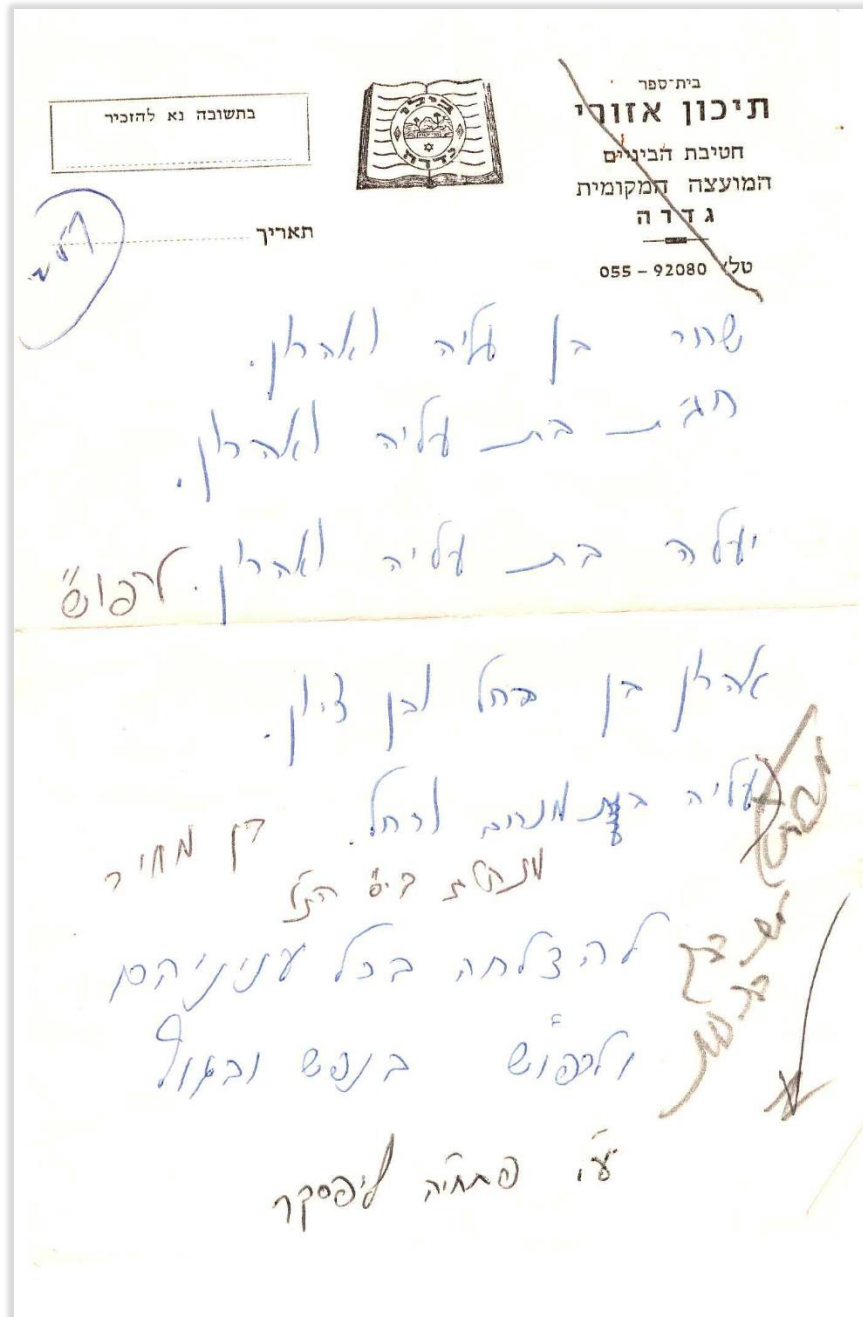 בית־ספר
תיכון אזורי
חטיבת הביניים
המועצה המקומית
גדרה
טל׳ 055-92080
בתשובה נא להזכיר
גדרה
תאריך
שחר בן עליה ואהרון.
חגית בת עליה ואהרון.
יעלה בת עליה ואהרון. לרפו"ש
אהרון בן רחל ובן ציון.
עליה בת מנחם ורחל.
מנהלת ביה"ס הנ"ל
להצלחה בכל עניניהם
ולרפו"ש בנפש ובגוף
ע"י פתחיה ליפסקר